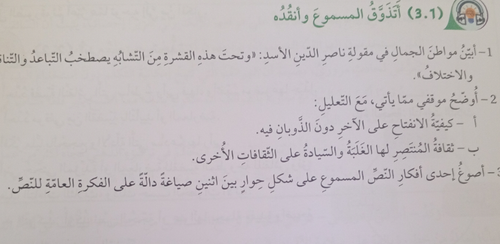 (3.1) أَتَذَوَّقُ المسموعَ وأنقُدُه
1- أبيّنُ مواطنَ الجمالِ في مقولةِ ناصرِ الدّينِ الأسدِ: «وتحتَ هذهِ القشرةِ مِنَ التّشابُهِ يصطخبُ التّباعدُ
والاختلافُ».
2- أُوضّحُ موقفي ممّا يأتي، مَعَ التّعليلِ:
أ - كيفيّةُ الانفتاحِ على الآخرِ دونَ الذّوبانِ فيه.
ب - ثقافةُ المُنتَصِرِ لها الغَلَبَةُ والسّيادةُ على الثّقافاتِ الأُخرى.
- أصوغُ إحدى أفكارِ النّصِّ المسموعِ على شكلِ حِوارٍ بينَ اثنينِ صياغةً دالّةً على الفكرةِ العامّةِ للنّصِّ.